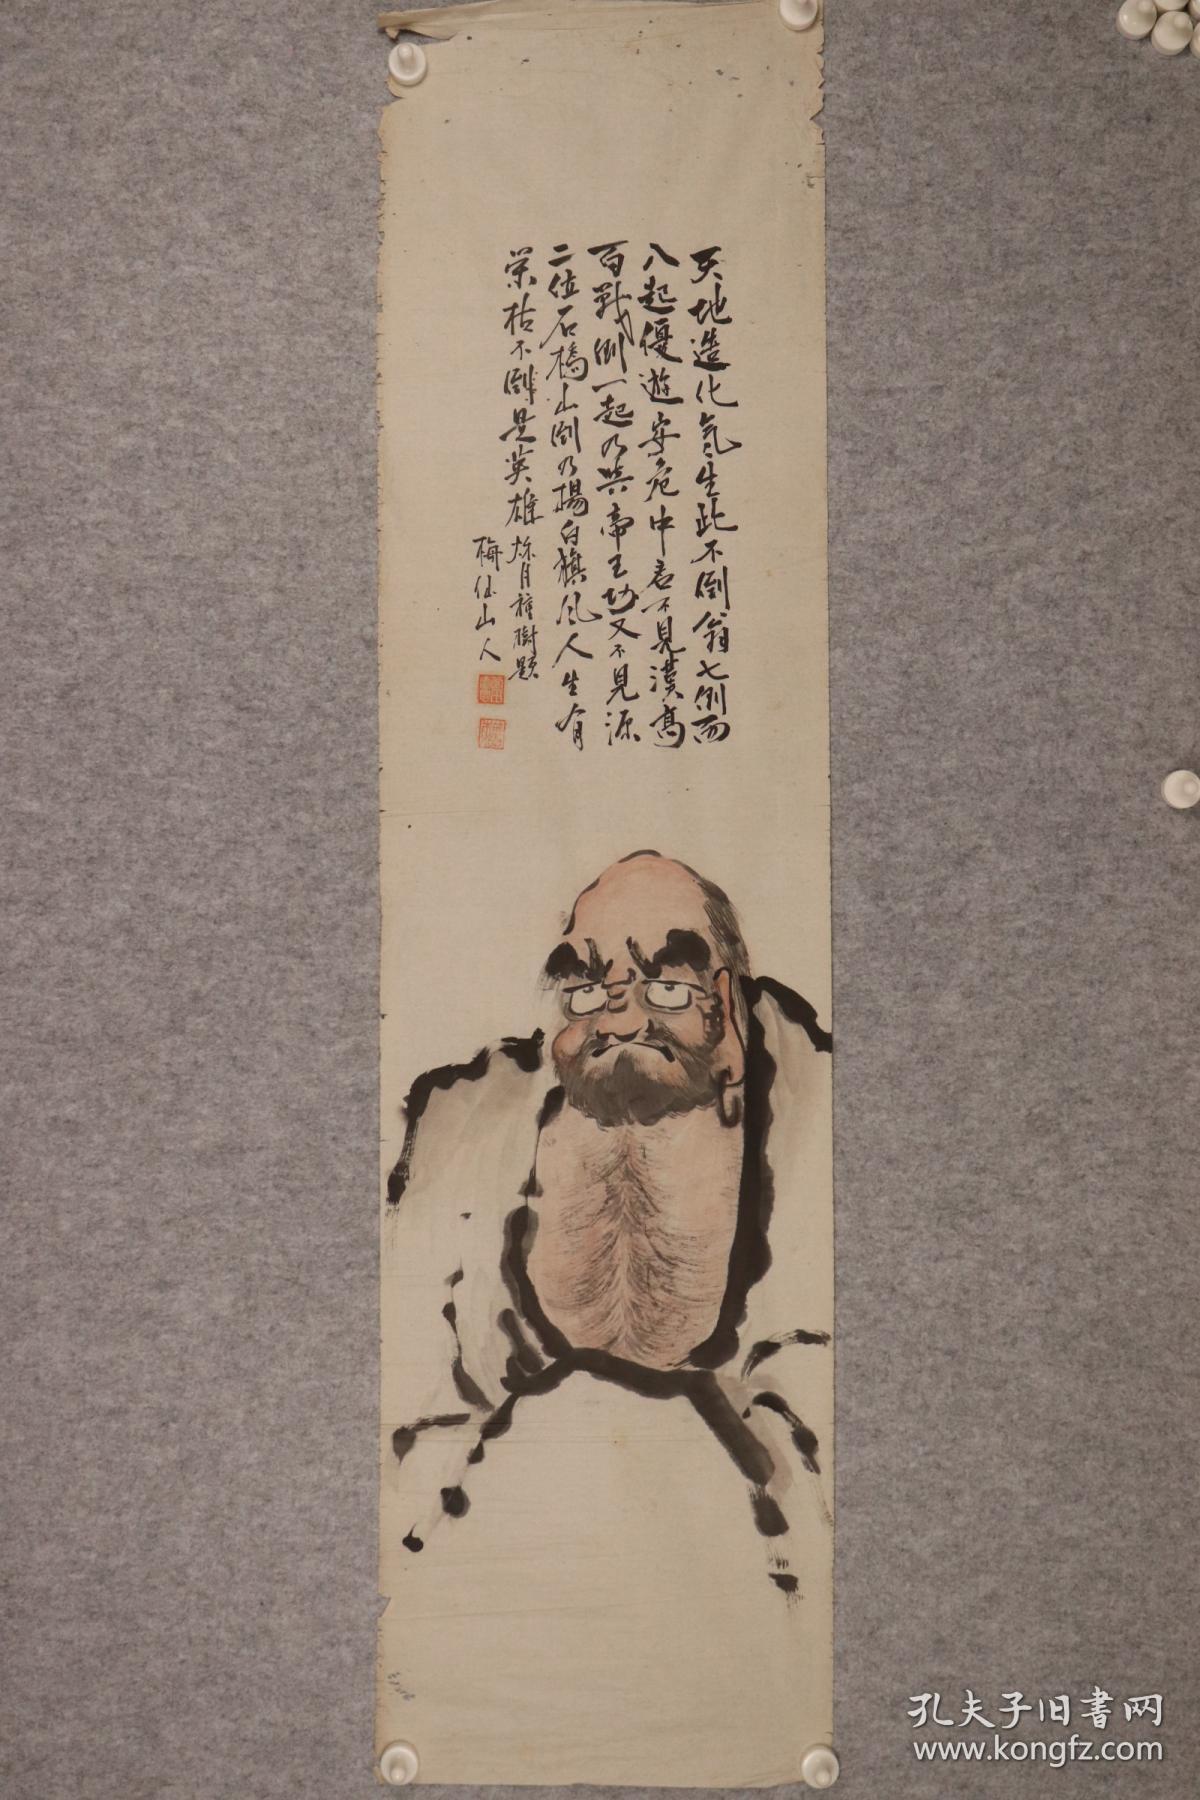 天地造化氣生此不倒翁七倒而
八起優遊安危中君不見漢高
百戰倒一起乃與帝王功又不見源
二位石橋山倒乃揚白旗風人生有
榮枯不倒是英雄
月種樹題
梅仙山人
孔夫子旧書网
www.kongfz.com